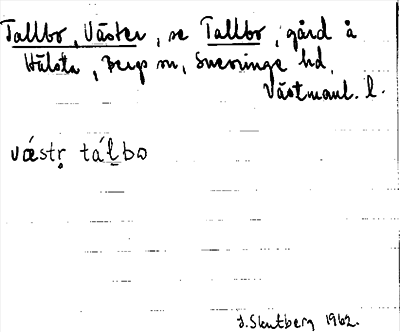 Tallbo, Väster, se Tallbo, gård å
Hälsta, Bergs sn, Snevringe hd,
Västmanl. l.
væstr̥ tálbo
J. Skutberg 1962.